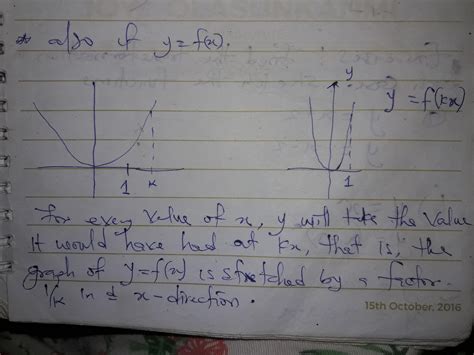 also if y = f(x).
y
y = f(kx)
1 k
1
For every value of x, y will take the value
it would have had at kx, that is, the
graph of y=f(x) is stretched by a factor
1/k in ± x-direction.
15th October, 2016